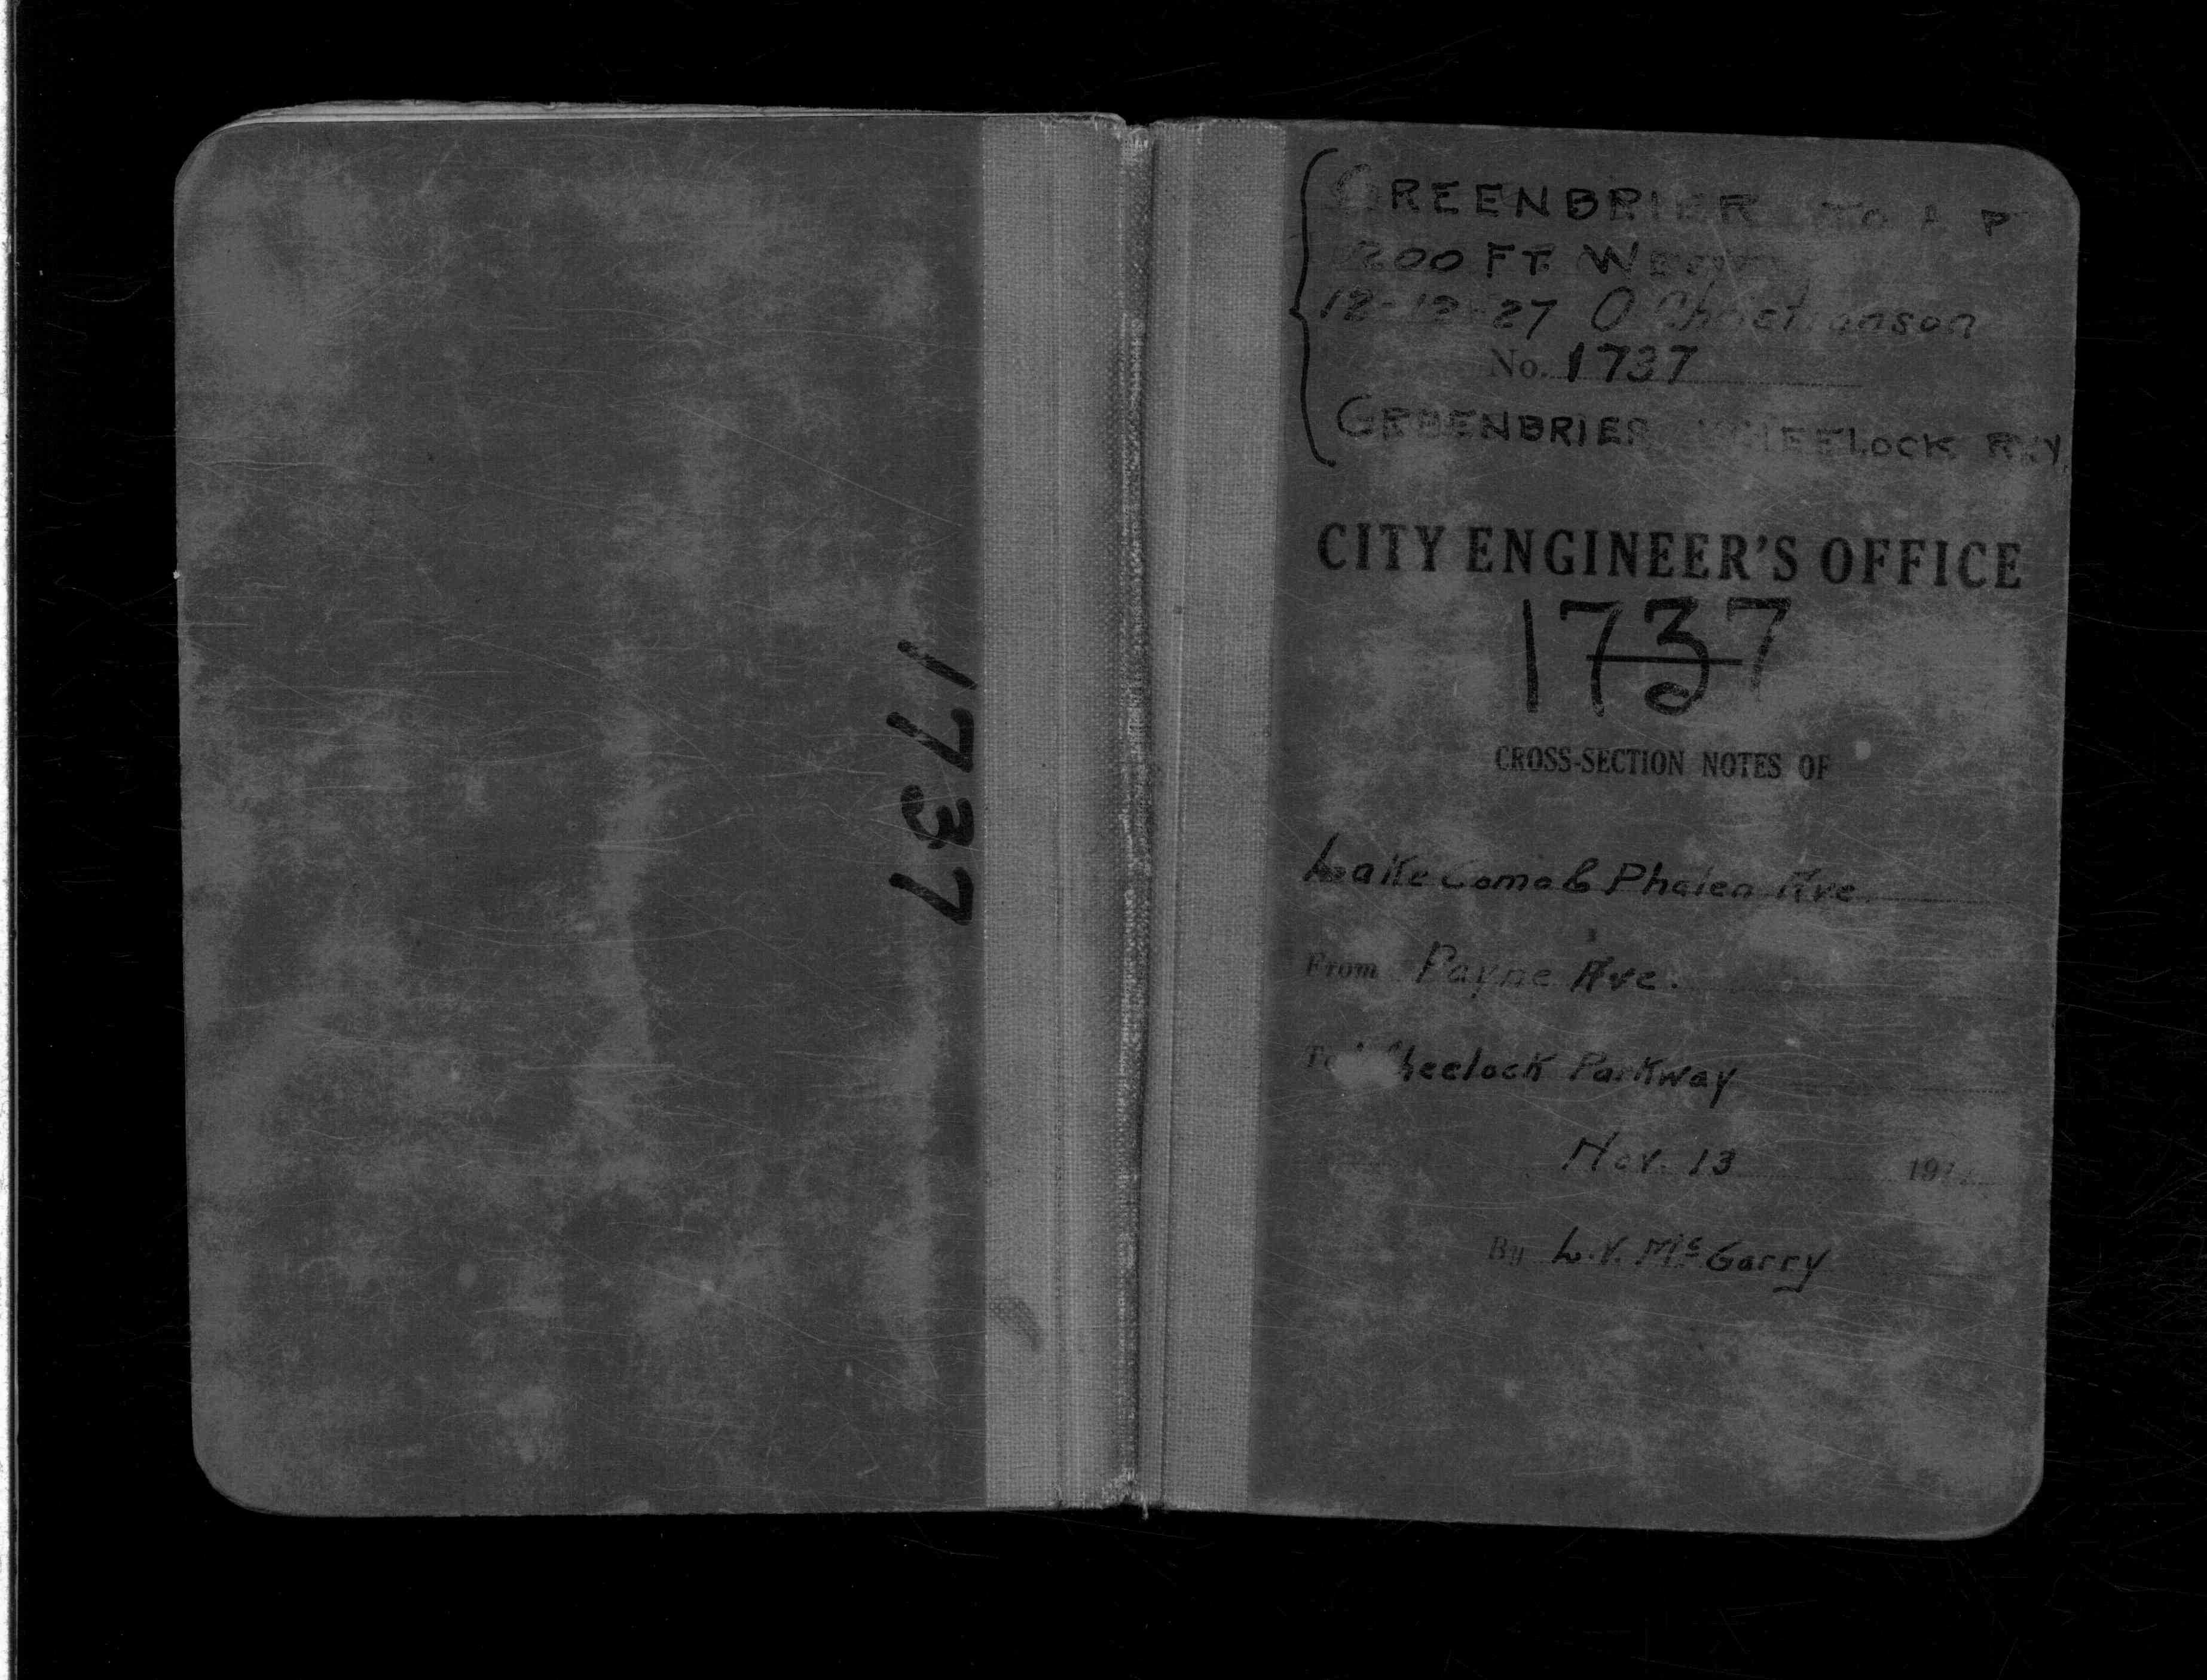 1737
GREENBRIER TO A P
200 FT. WEST
12-12-27 O Christianson
No. 1737
GREENBRIER WHEELOCK PKY.
CITY ENGINEER'S OFFICE
1737
CROSS-SECTION NOTES OF
Lake Como & Phalen Ave
From Payne Ave.
To Wheelock Parkway
Nov. 13
By L.V. McGarry